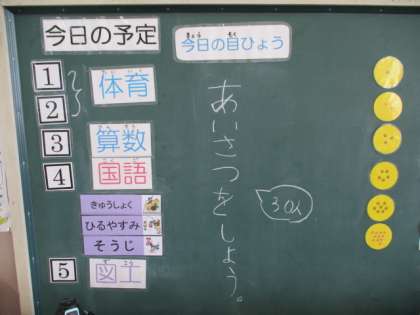 今日の予定
1
2
体育
3
算数
4
国語
きゅうしょく
ひるやすみ
そうじ
5
図工
ず こう
今日の目ひょう
きょう もく
あいさつをしよう。
30人